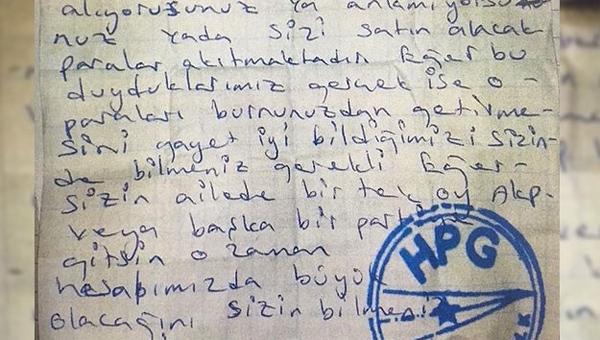 alıyorsunuz ya anlamıyorsu
nuz yada sizi satın alacak
paralar akıtmaktadın Eğer bu
duyduklarımız gerçek ise o -
paraları burnunuzdan getirme-
sini gayet iyi bildiğimizi sizin-
de bilmeniz gerekli Eğer-
sizin ailede bir tek oy Akp-
veya başka bir
gitsin o zaman
hesabımızda büyük
olacağını sizin
HPG